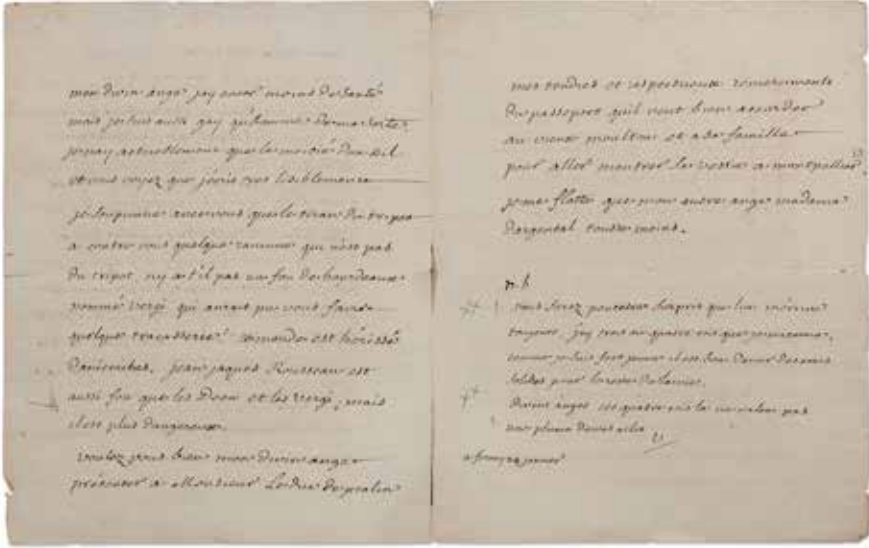 mon divin ange jay encor moins de santé
mais je suis aussi gay qu'homme de ma sorte
je nay actuellement que la moitié d'un œil
et vous voyez que jécris tres lisiblement
je soupçonne avec vous que le tiran du tripot
a contre vous quelque rancune qui n'est pas
du tripot. ny a t'il pas un fou de bourdeaux
nommé vergi qui aurait pu vous faire
quelque tracasserie? ce monde est hérissé
d'anicroches. jean jaques Rousseau est
aussi fou que les Deon et les vergi, mais
il est plus dangereux.
voulez vous bien mon divin ange
présenter a Monsieur Le duc de pralin
mes tendres et respectueux remerciments
du passeport quil veut bien accorder
au vieux moultou et a sa famille
pour aller montrer sa vessie a montpellier.
je me flatte que mon autre ange madame
Dargental tousse moins.
n. b
vous serez peutetre surpris que lun
toujours. jay
comme je suis fort jeune il est bon d'avoir des amis
solides pour le reste de la vie.
Divins anges ces quatre
une plume de vos ailes
V